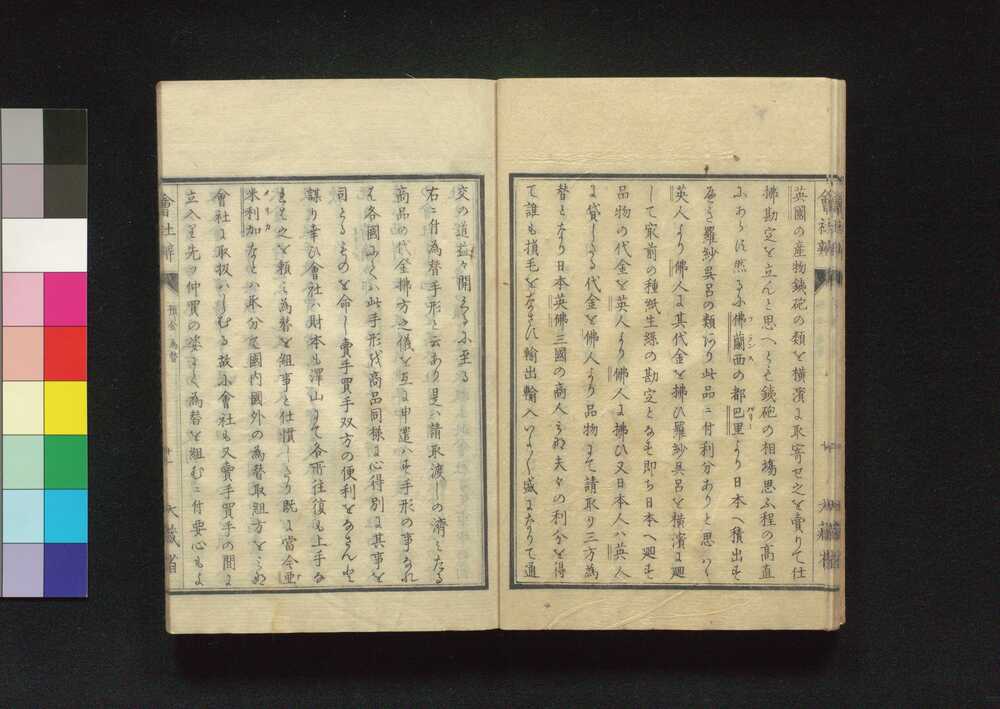 英國の産物銕砲の類を横濱に取寄セ之を賣りて仕
拂勘定を立んと思へとも銕砲の相塲思ふ程の高直
にあらす然るに佛蘭西の都巴里より日本へ積出す
フランス
パリー
へき羅紗呉呂の類あり此品ニ付利分ありと思
英人より佛人に其代金を拂ひ羅紗呉呂を横濱に廻
して家前の種紙生絲の勘定となす即ち日本へ廻す
品物の代金を英人より佛人に拂ひ又日本人ハ英人
に貸したる代金を佛人より品物にて請取り三方為
替となり日本英佛三國の商人ミな夫々の利分を得
て誰も損毛をなさす輸出輸入いよ〱盛になりて通
交の道益々開くるに至る
右ニ付為替手形と云あり是ハ請取渡しの濟ミたる
商品の代金拂方之儀を互に申遣ハす手形の事なれ
は各國にてハ此手形を商品同様に心得別に其事を
司とるものを命し賣手買手双方の便利をなさんと
謀り幸ひ會社ハ財本も澤山にて各所往復も上手な
れは之を頼ミ為替を組事と仕慣したり既に當今亜
米利加なとハ取分て國内國外の為替取組方をミな
メリカ
會社に取扱ハしむる故に會社も又賣手買手の間に
立入り先ツ仲買の姿にて為替を組むニ付要心もよ
會社辨
預金 為替
十一
大藏省